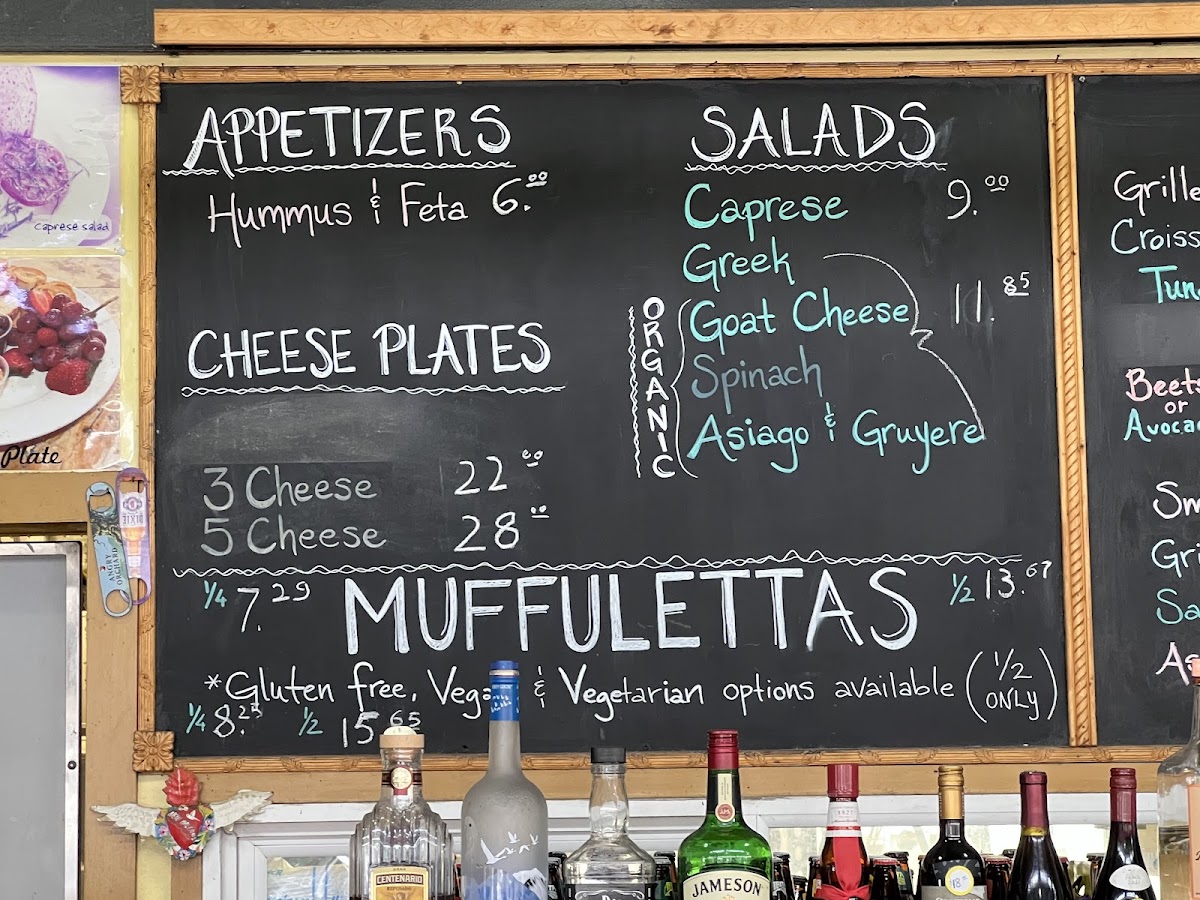 APPETIZERS
Hummus & Feta 6.00
CHEESE PLATES
3 Cheese 22.00
5 Cheese 28.00
SALADS
Caprese 9.00
Greek
Goat Cheese
Spinach
Asiago & Gruyere
11.85
ORGANIC
1/4 7.29 MUFFULETTAS 1/2 13.67
*Gluten free, & Vegetarian options available (1/2 ONLY)
1/4 8.25 1/2 15.65
Caprese salad
Plate
ANGRY ORCHARD
DIXIE
Beets
or
CENTENARIO
JAMESON
18